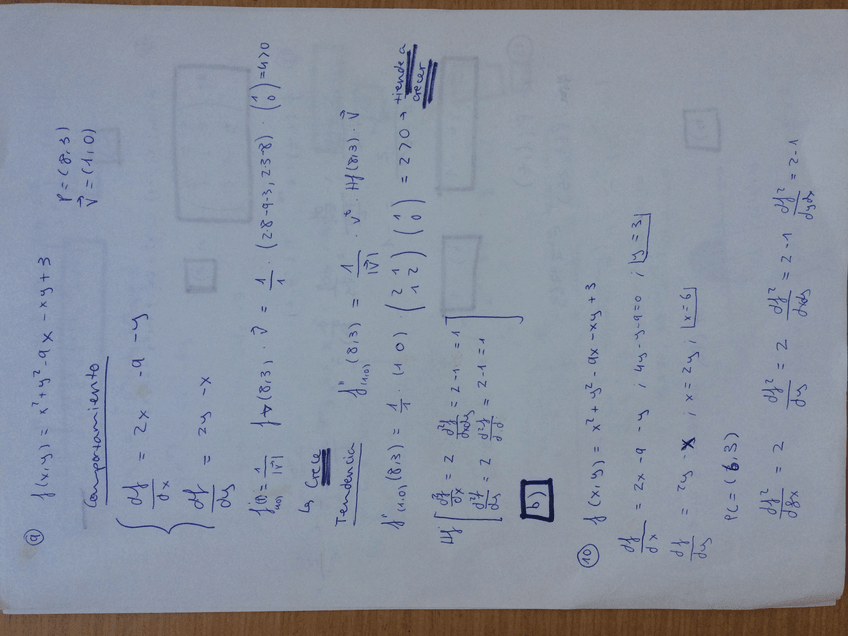 9 f(x,y) = x² + y² - 9x - xy + 3 P = (8,3)
v⃗ = (1,0)
Comportamiento
df/dx = 2x - 9 - y
df/dy = 2y - x
f'(1,0) = 1/|v⃗| f∇(8,3) · v⃗ = 1/1 · (2·8-9-3, 2·3-8) · (1 0) = 4>0
↳ Crece
Tendencia f''(1,0) (8,3) = 1/|v⃗| · vᵗ · Hf(8,3) · v⃗
f''(1,0) (8,3) = 1/1 · (1 0) (2 1 1 2) (1 0) = 2>0 → tiende a crecer
Hf [ d²f/dx = 2 d²f/dxdy = 2-1 = 1
d²f/dy = 2 d²f/d·d = 2-1 = 1 ]
b)
10 f(x,y) = x² + y² - 9x - xy + 3
df/dx = 2x - 9 - y ; 4y - y - 9 = 0 ; y = 3
df/dy = 2y - x ; x = 2y ; x = 6
PC = (6,3)
df²/dx = 2 df²/dy = 2 df²/dxdy = 2-1 df²/dydx = 2-1